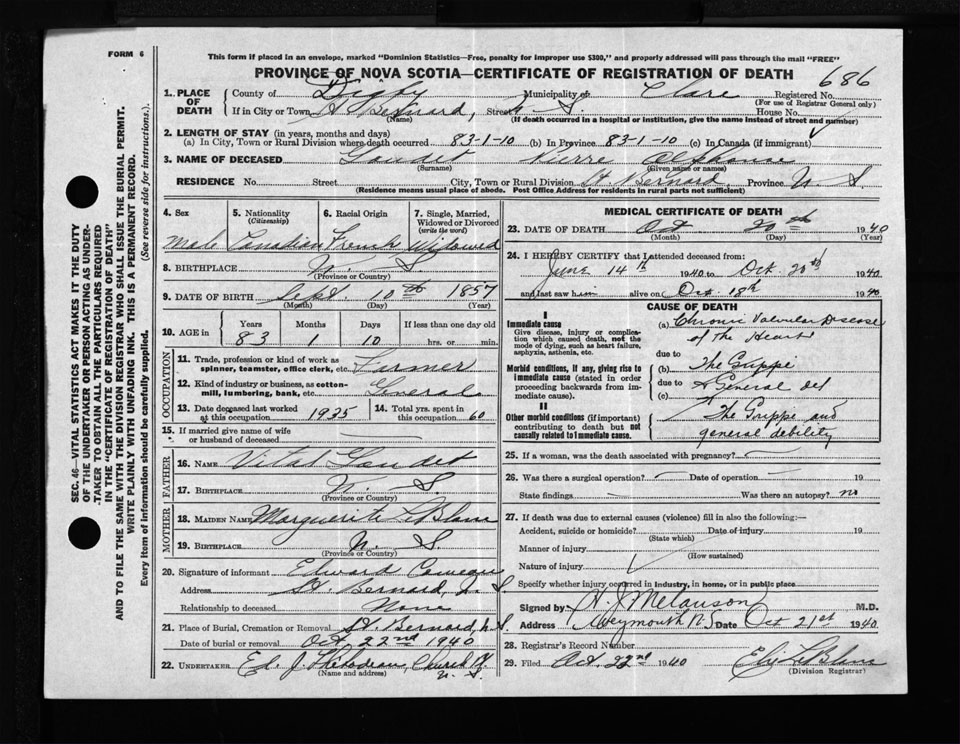 FORM 6
This form if placed in an envelope, marked "Dominion Statistics—Free, penalty for improper use $300," and properly addressed will pass through the mail "FREE"
PROVINCE OF NOVA SCOTIA—CERTIFICATE OF REGISTRATION OF DEATH
686
1. PLACE OF DEATH County of Digby Municipality of Clare Registered No.
(For use of Registrar General only)
If in City or Town St Bernard, Street N S House No.
(Name) (If death occurred in a hospital or institution, give the name instead of street and number)
2. LENGTH OF STAY (in years, months and days)
(a) In City, Town or Rural Division where death occurred 83-1-10 (b) In Province 83-1-10 (c) In Canada (if immigrant)
3. NAME OF DECEASED Gaudet Pierre Alphonse
(Surname) (Given name or names)
RESIDENCE No. Street City, Town or Rural Division St. Bernard Province N. S.
(Residence means usual place of abode. Post Office Address for residents in rural parts not sufficient)
4. Sex 5. Nationality (Citizenship) 6. Racial Origin 7. Single, Married, Widowed or Divorced (write the word)
Male Canadian French Widowed
8. BIRTHPLACE N. S
(Province or Country)
9. DATE OF BIRTH Sept. 10th 1857
(Month) (Day) (Year)
10. AGE in Years Months Days If less than one day old
83 1 10 hrs. or min.
OCCUPATION
11. Trade, profession or kind of work as spinner, teamster, office clerk, etc. Farmer
12. Kind of industry or business, as cotton-mill, lumbering, bank, etc. General
13. Date deceased last worked at this occupation 1935 14. Total yrs. spent in this occupation 60
15. If married give name of wife or husband of deceased
FATHER
16. NAME Vital Gaudet
17. BIRTHPLACE N. S
(Province or Country)
MOTHER
18. MAIDEN NAME Marguerite LeBlanc
19. BIRTHPLACE N. S.
(Province or Country)
20. Signature of informant Edward
Address St. Bernard, N. S
Relationship to deceased None
21. Place of Burial, Cremation or Removal St. Bernard, N. S.
Date of burial or removal Oct 22nd 1940
22. UNDERTAKER Ed. J. Thibodeau Church Pt.
(Name and address) N. S.
MEDICAL CERTIFICATE OF DEATH
23. DATE OF DEATH Oct 20th 1940
(Month) (Day) (Year)
24. I HEREBY CERTIFY that I attended deceased from:
June 14th 1940 to Oct. 20th 1940
and last saw him alive on Oct. 18th 1940
CAUSE OF DEATH
I
Immediate cause
Give disease, injury or complication which caused death, not the mode of dying, such as heart failure, asphyxia, asthenia, etc.
(a) Chronic Valvular Disease
of the Heart
due to
Morbid conditions, if any, giving rise to immediate cause (stated in order proceeding backwards from immediate cause).
(b) The Grippe
due to
(c) & General del
II
Other morbid conditions (if important) contributing to death but not causally related to immediate cause.
The Grippe and
general debility
25. If a woman, was the death associated with pregnancy?
26. Was there a surgical operation? Date of operation 19
State findings Was there an autopsy? no
27. If death was due to external causes (violence) fill in also the following:—
Accident, suicide or homicide? Date of injury 19
(State which)
Manner of injury
(How sustained)
Nature of injury
Specify whether injury occurred in industry, in home, or in public place
Signed by H. J. Melanson M.D.
Address Weymouth N.S Date Oct 21st 1940
28. Registrar's Record Number
29. Filed Oct 22nd 1940 LeBlanc
(Division Registrar)
SEC. 46—VITAL STATISTICS ACT MAKES IT THE DUTY
OF THE UNDERTAKER OR PERSON ACTING AS UNDER-
TAKER TO OBTAIN ALL THE PARTICULARS REQUIRED
IN THE "CERTIFICATE OF REGISTRATION OF DEATH"
AND TO FILE THE SAME WITH THE DIVISION REGISTRAR WHO SHALL ISSUE THE BURIAL PERMIT.
WRITE PLAINLY WITH UNFADING INK. THIS IS A PERMANENT RECORD.
Every item of information should be carefully supplied. (See reverse side for instructions.)